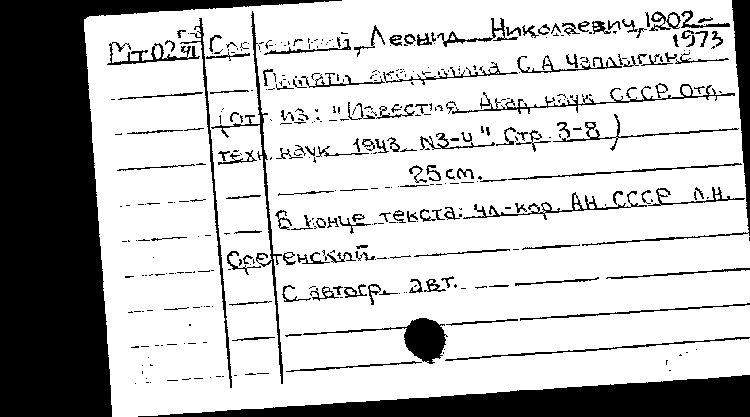 Мт02 Г-3/VI Сретенский, Леонид Николаевич, 1902-
1973
Памяти академика С.А. Чаплыгина.
(От. из: "Известия Акад. наук СССР. Отд.
техн. наук. 1943. N3-4". Стр. 3-8)
25 см.
В конце текста: чл.-кор. АН СССР Л.Н.
Сретенский.
С автогр. авт.